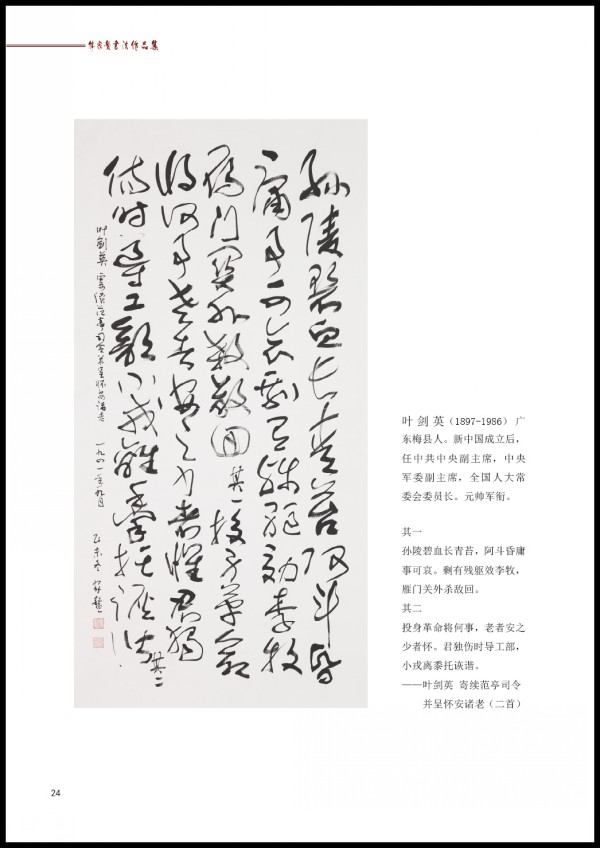 书法作品集
孙陵碧血长青苔阿斗昏
庸事可哀剩有残躯效李牧
雁门关外杀敌回 其一 投身革命
将何事老者安之少者怀君独
伤时导工部小戎离黍托诙谐 其二
叶剑英
一九四一年九月
乙未冬
叶剑英(1897-1986)广
东梅县人。新中国成立后,
任中共中央副主席,中央
军委副主席,全国人大常
委会委员长。元帅军衔。
其一
孙陵碧血长青苔,阿斗昏庸
事可哀。剩有残躯效李牧,
雁门关外杀敌回。
其二
投身革命将何事,老者安之
少者怀。君独伤时导工部,
小戎离黍托诙谐。
——叶剑英 寄续范亭司令
并呈怀安诸老(二首)
24